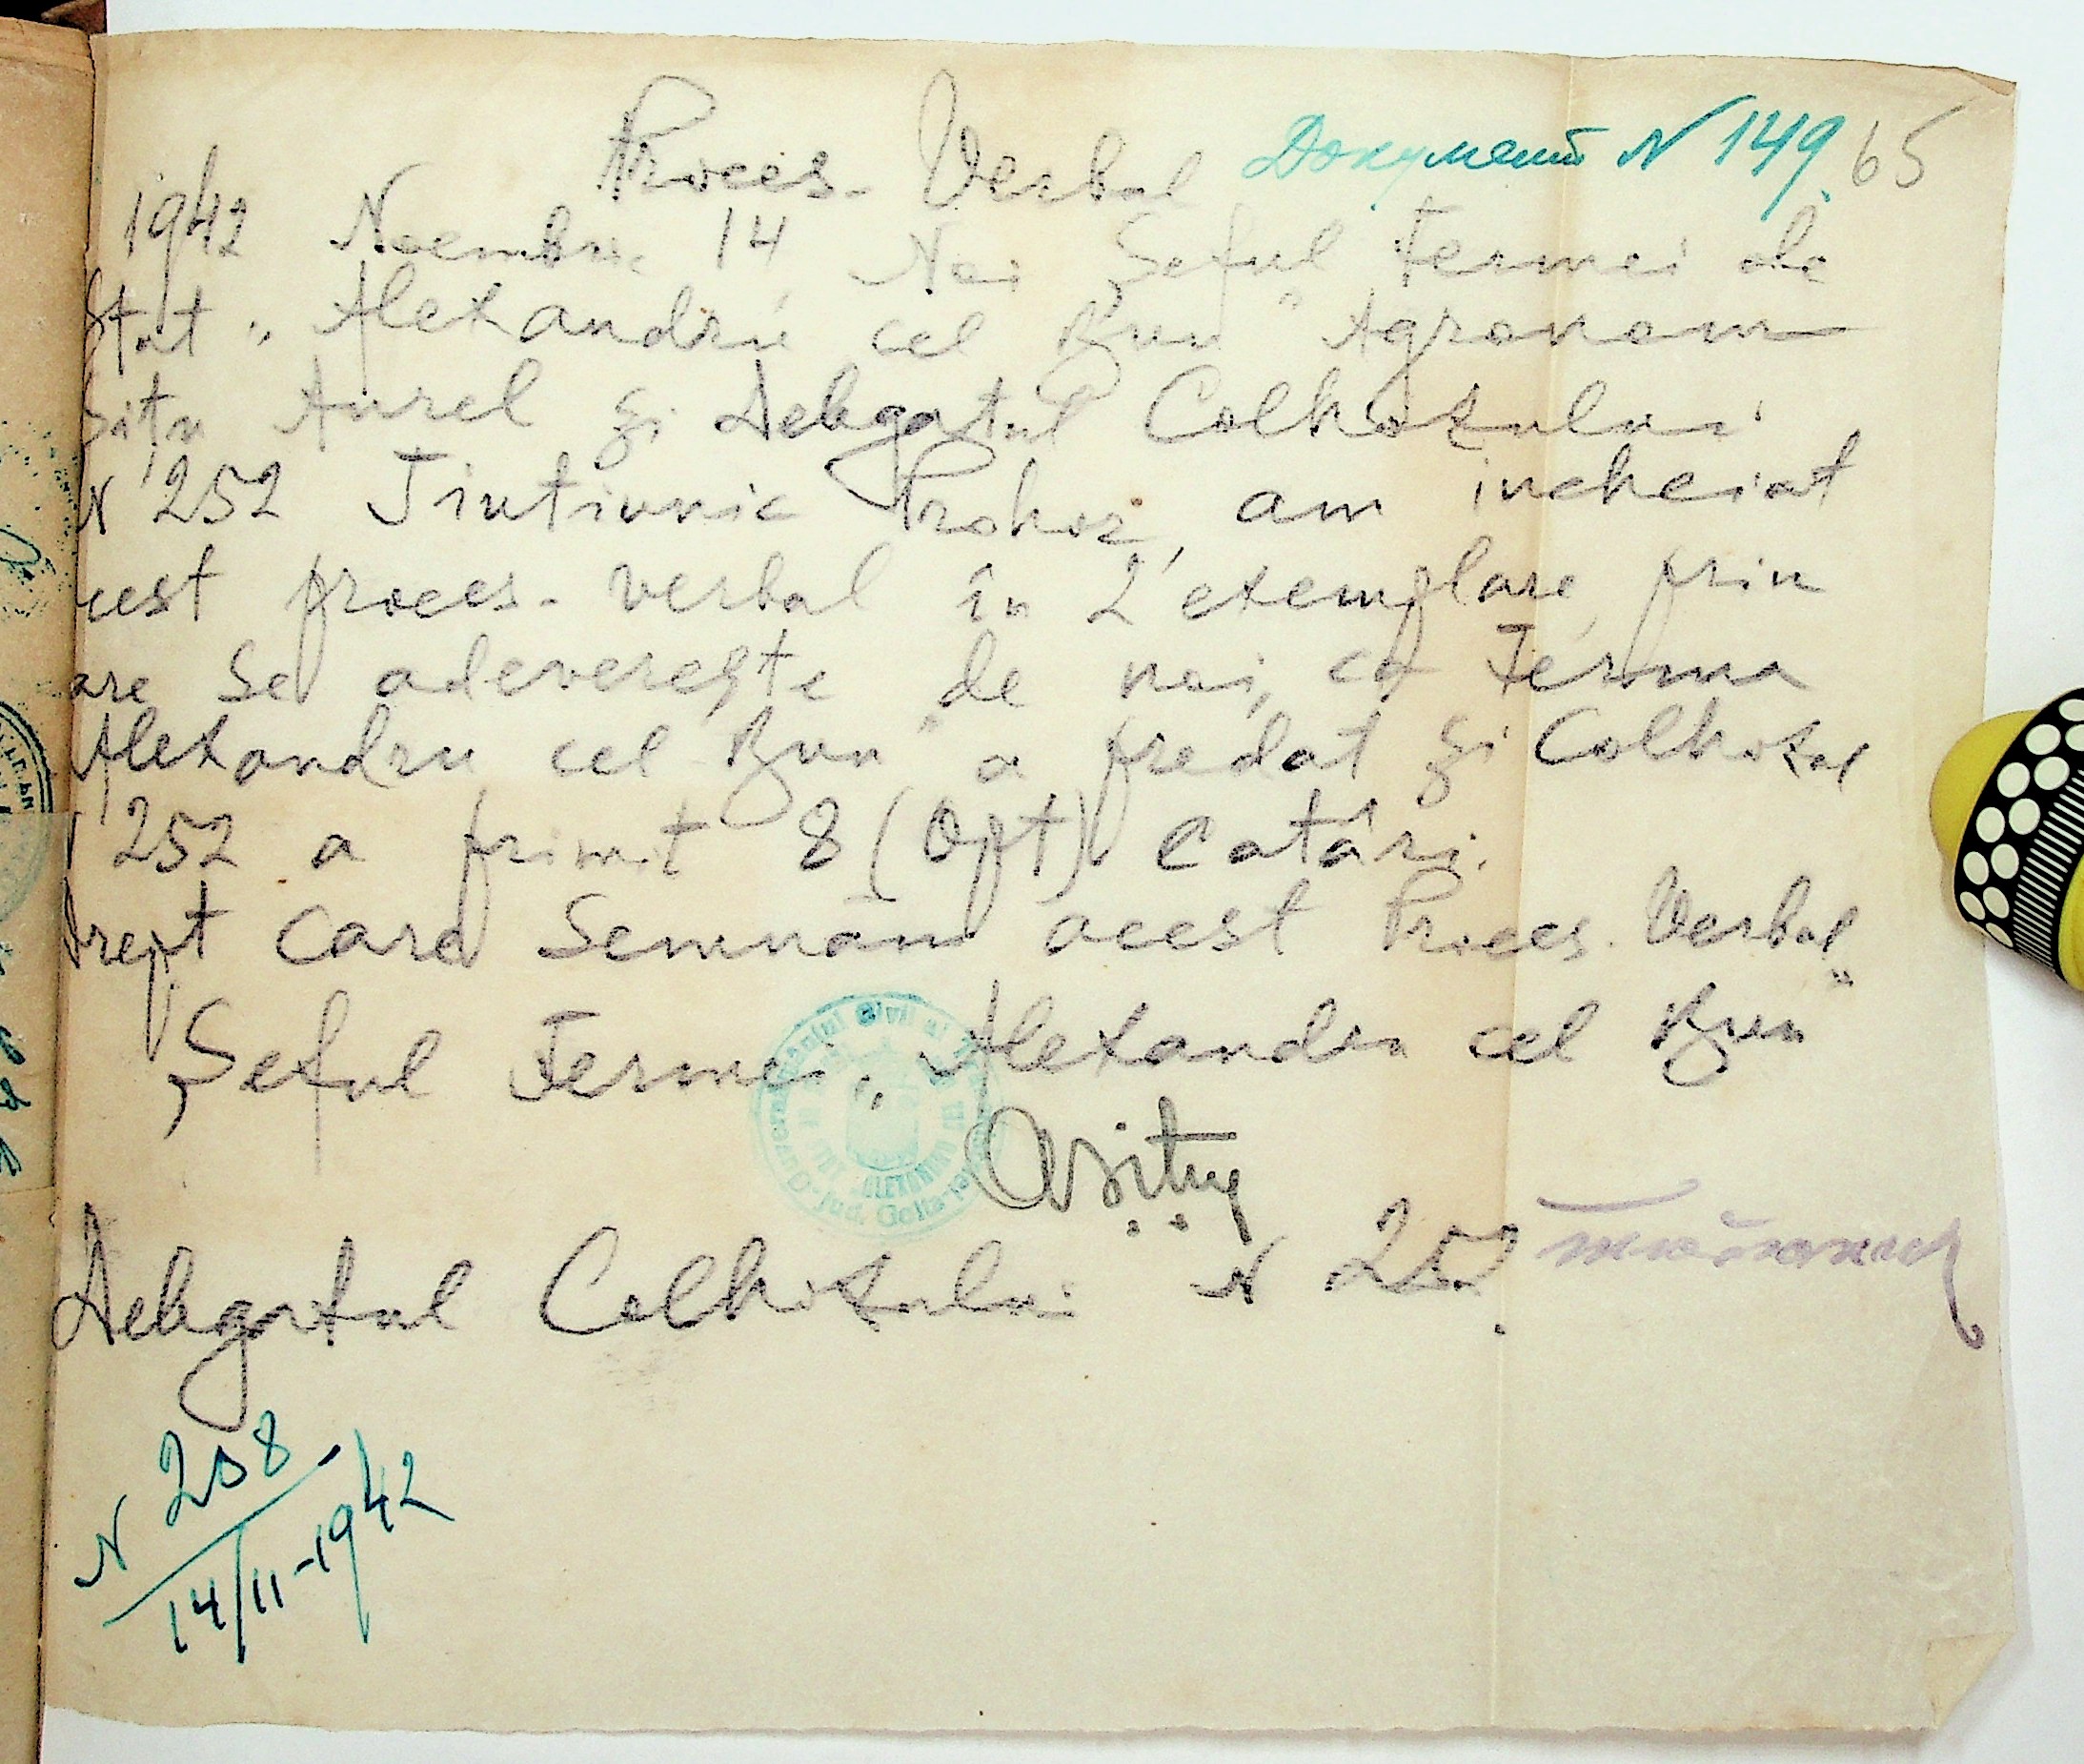 Документ N 149. 65
Proces-Verbal
1942 Noembrie 14 Noi Șeful Fermei de
Stat „Alexandru cel Bun" Agronom
Bitu Aurel și Delegatul Colhozului
N 252 Tiutiunic Prohor, am incheiat
cest proces-verbal în 2 exemplare, prin
are se adeverește de noi, că Ferma
Alexandru cel Bun" a predat și Colhozul
252 a primit 8 (Opt) Catâri.
Drept care Semnăm acest Proces-Verbal
Șeful Fermei „Alexandru cel Bun"
ABitu
Delegatul Colhozului N 252.
N 258.
14/11-1942
jud. Golta